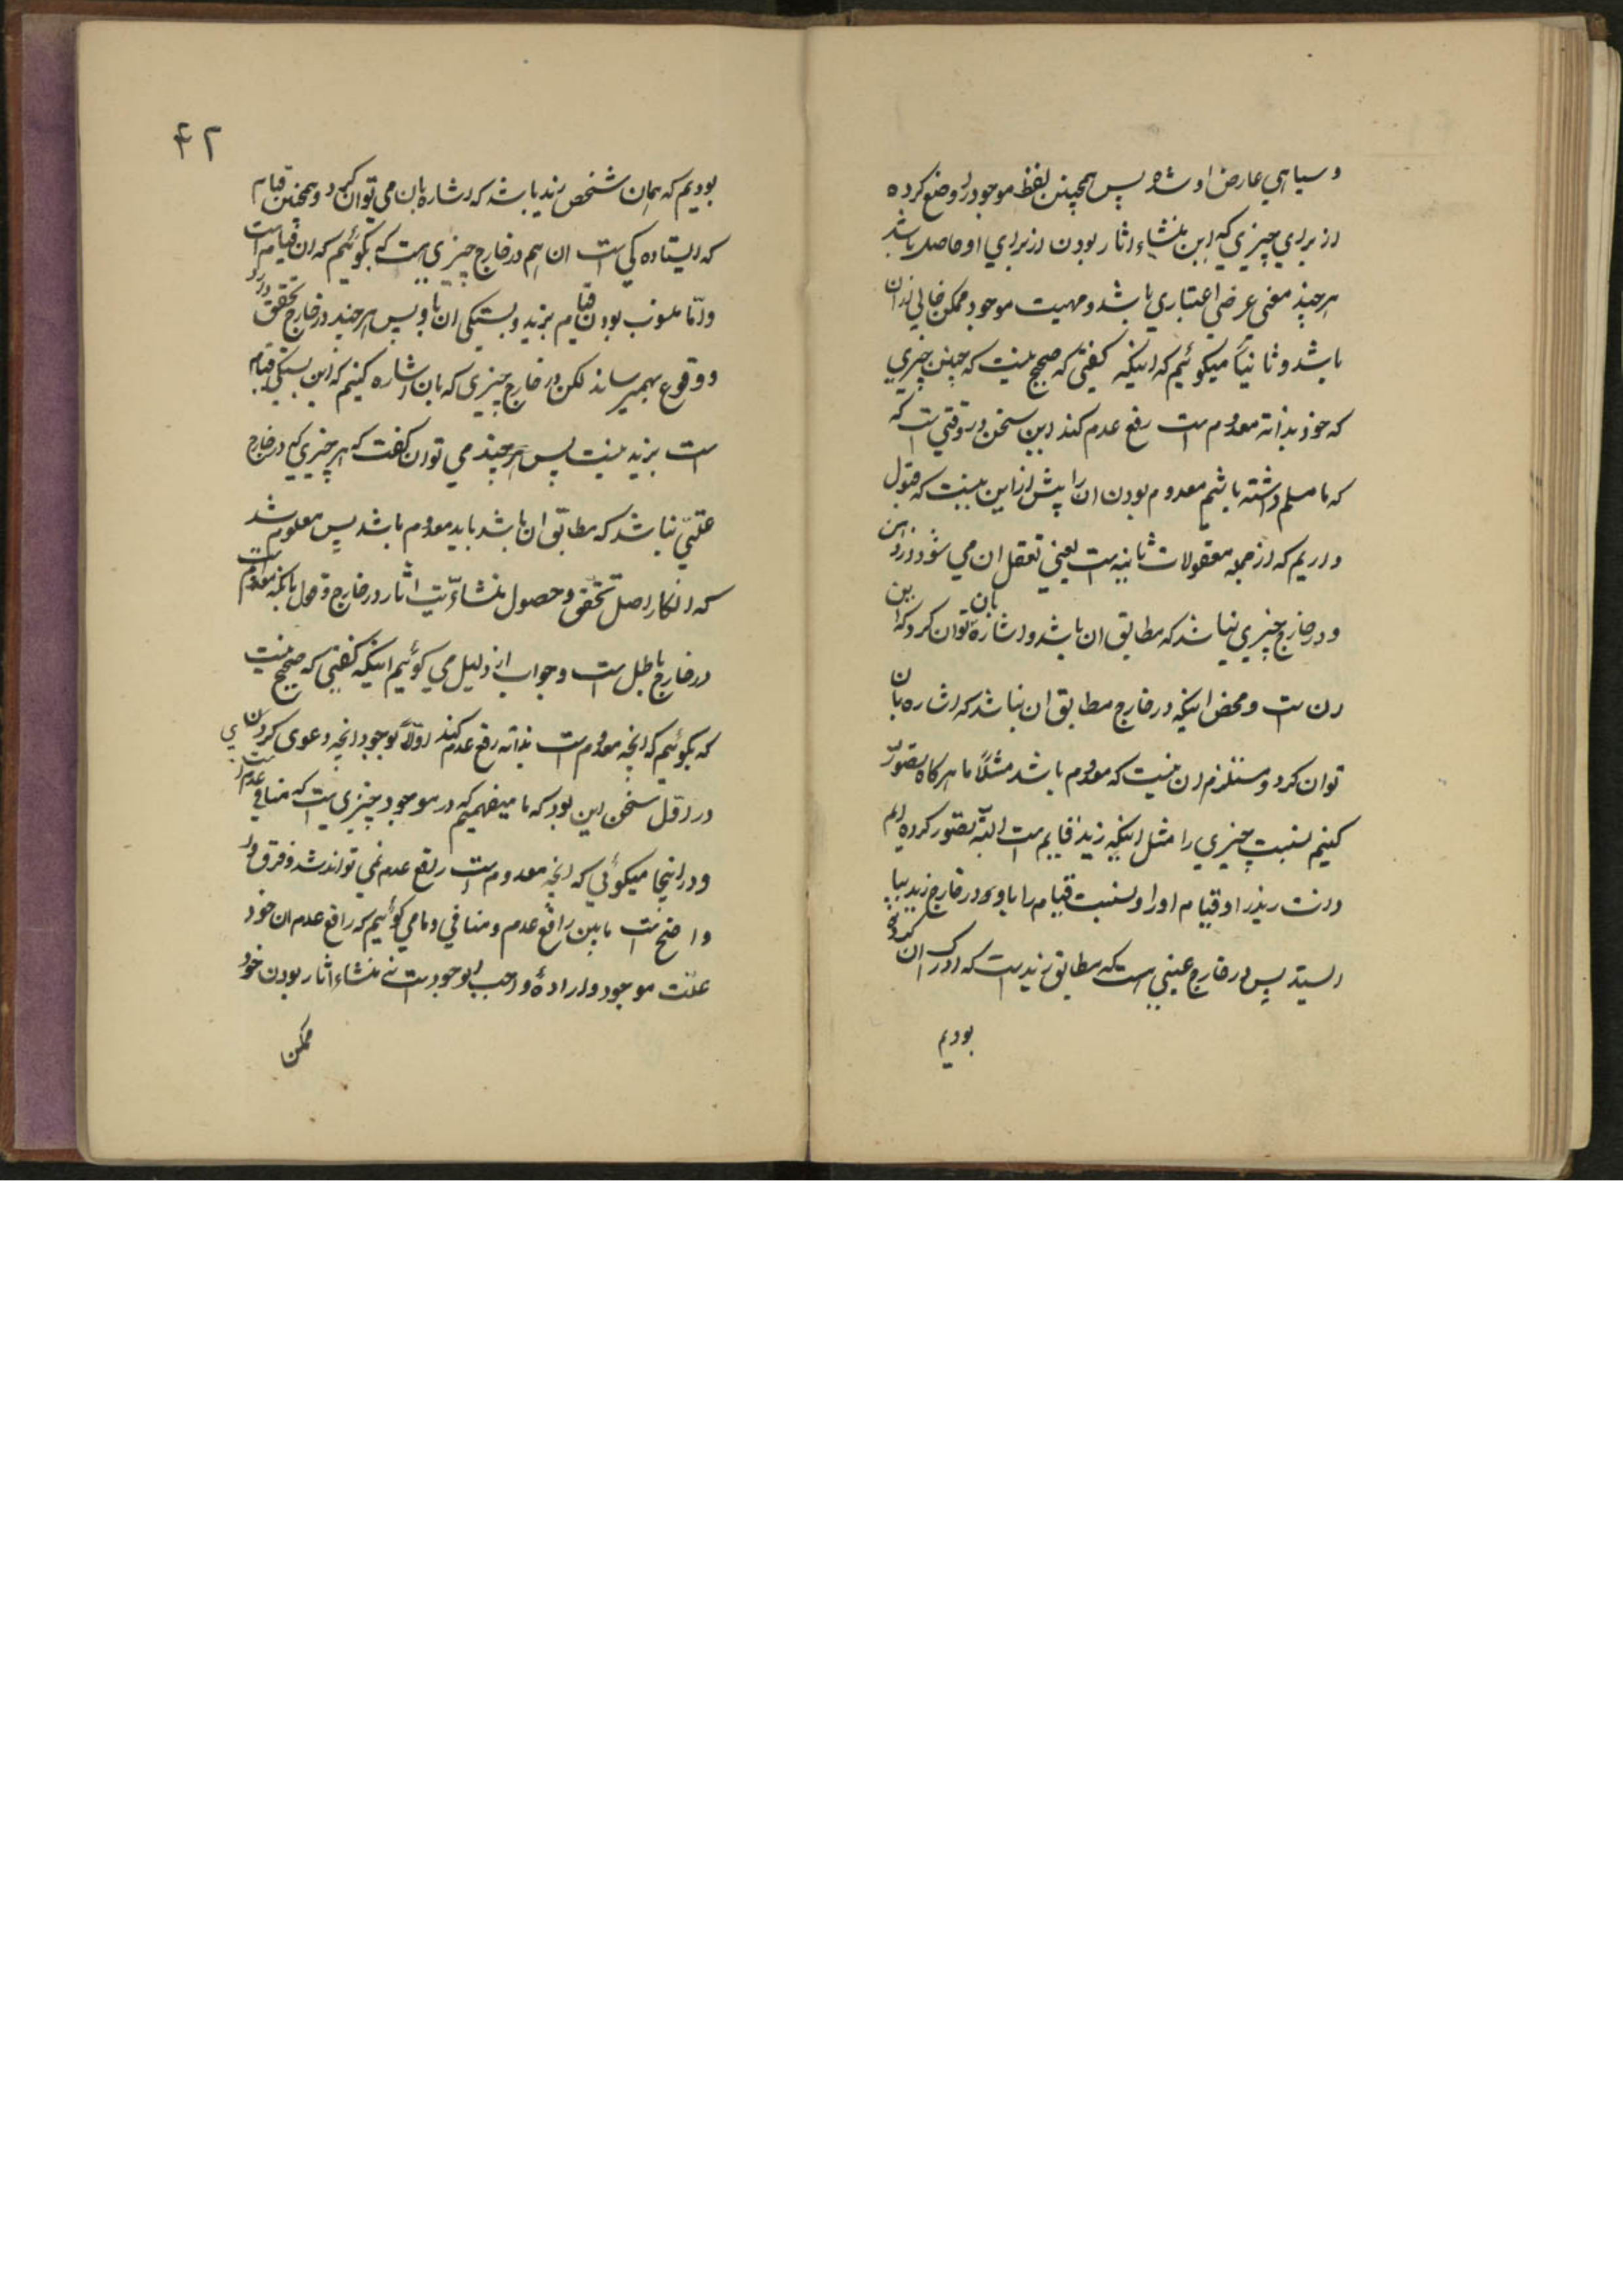 و سیاهي عارض او شده پس همچنین لفظ موجود را وضع کرده
از براي چیزي که این منشاء اثار بودن از براي او حاصل باشد
هر چند معني عرضي اعتباري باشد و مهیت موجود ممکن خالي از ان
باشد و ثانیاً میکوئیم که اینکه کفتي که صحیح نیست که چنین چیزي
که خود بذاته معدوم است رفع عدم کند این سخن در وقتي است که
که ما مسلم داشته باشیم معدوم بودن ان را پیش از این نیست که قبول
داریم که از جمله معقولات ثانیه است یعني تعقل ان مي شود در ذهن
و در خارج چیزي نباشد که مطابق ان باشد و اشاره بان توان کرد که این
ان است و محض اینکه در خارج مطابق ان نباشد که اشاره بان
توان کرد مستلزم ان نیست که معدوم باشد مثلاً ما هرکاه تصوّر
کنیم نسبت چیزي را مثل اینکه زید قایم است البتّه تصوّر کرده ایم
ذات زید را و قیام او را و نسبت قیام را باو و در خارج زید بپا
ایستد پس در خارج عیني است که مطابق زید است که ادراک ان کرده
بودیم
۴۲
بودیم که همان شخص زید باشد که اشاره بان مي توان کرد و همچنین قیام
که ایستاده کي است ان هم در خارج چیزی هست که بکوئیم که ان قیام است
و امّا منسوب بودن قیام بزید و بستکي ان باو پس هر چند در خارج تحقق دارد
و وقوع بهمیرساند لکن در خارج چیزی که بان اشاره کنیم که این بستکي قیام
است بزید نیست پس هر چند مي توان کفت که هر چیزی که در خارج
عیني نباشد که مطابق ان باشد باید معدوم باشد پس معلوم شد
که انکار اصل تحقق و حصول منشائیّت اثار در خارج و قول بانکه معدوم است
در خارج باطل است و جواب از دلیل مي کوئیم اینکه کفتي که صحیح نیست
که بکوئیم که انچه معدوم است بذاته رفع عدم کند اوّلاً بوجود انچه دعوی کردي
در اوّل سخن این بود که ما میفهمیم که در موجود چیزی هست که منافي عدم است
و در اینجا میکوئي که انچه معدوم است رافع عدم نمي تواند شد و فرق
واضح است مابین رافع عدم و منافي و ما مي کوئیم که رافع عدم ان خود
علّت موجود و ارادهٔ واجب الوجود است نه منشاء اثار بودن خود
ممکن